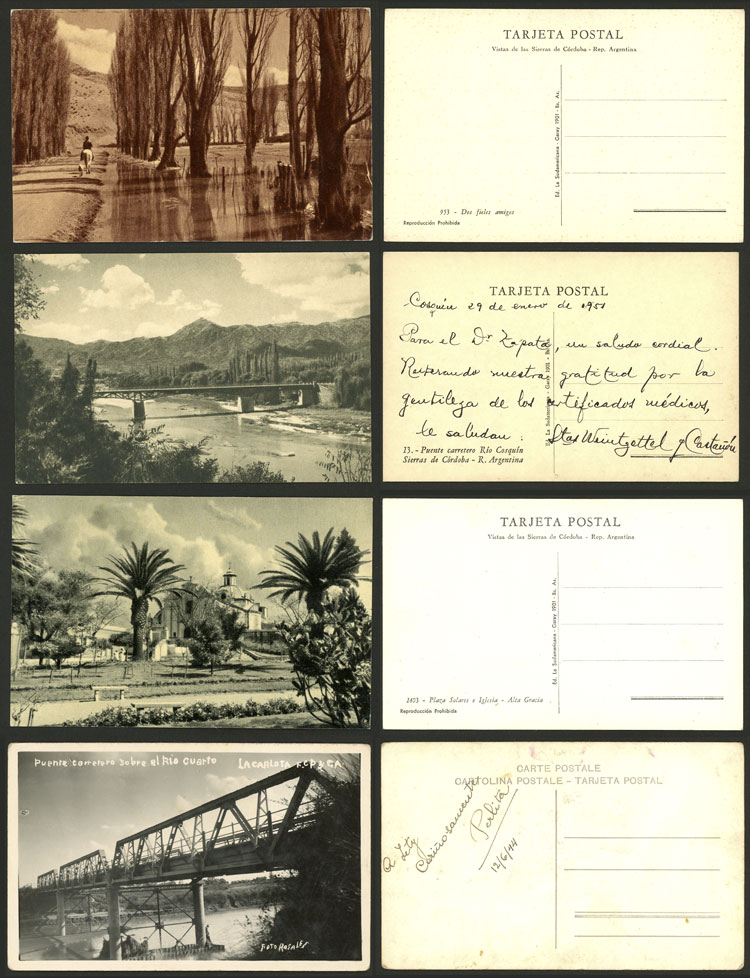 TARJETA POSTAL
Vistas de las Sierras de Córdoba - Rep. Argentina
Ed. La Sudamericana - Garay 1901 - Bs. As.
953 - Dos fieles amigos
Reproducción Prohibida
TARJETA POSTAL
Cosquín 29 de enero de 1951
Para el Dr Zapata, un saludo cordial.
Reiterando nuestra gratitud por la
gentileza de los certificados médicos,
le saludan:
Stas Weintzettel y Castañón
Ed. La Sudamericana Garay 1901 - Bs.
13. - Puente carretero Río Cosquín
Sierras de Córdoba - R. Argentina
TARJETA POSTAL
Vistas de las Sierras de Córdoba - Rep. Argentina
Ed. La Sudamericana - Garay 1901 - Bs. As.
2403 - Plaza Solares e Iglesia - Alta Gracia
Reproducción Prohibida
Puente carretero sobre el Río Cuarto
LA CARLOTA F.C.P. & C.A.
FOTO ROSALES
CARTE POSTALE
CARTOLINA POSTALE - TARJETA POSTAL
A Lety
Cariñosamente
Perlita
12/6/44